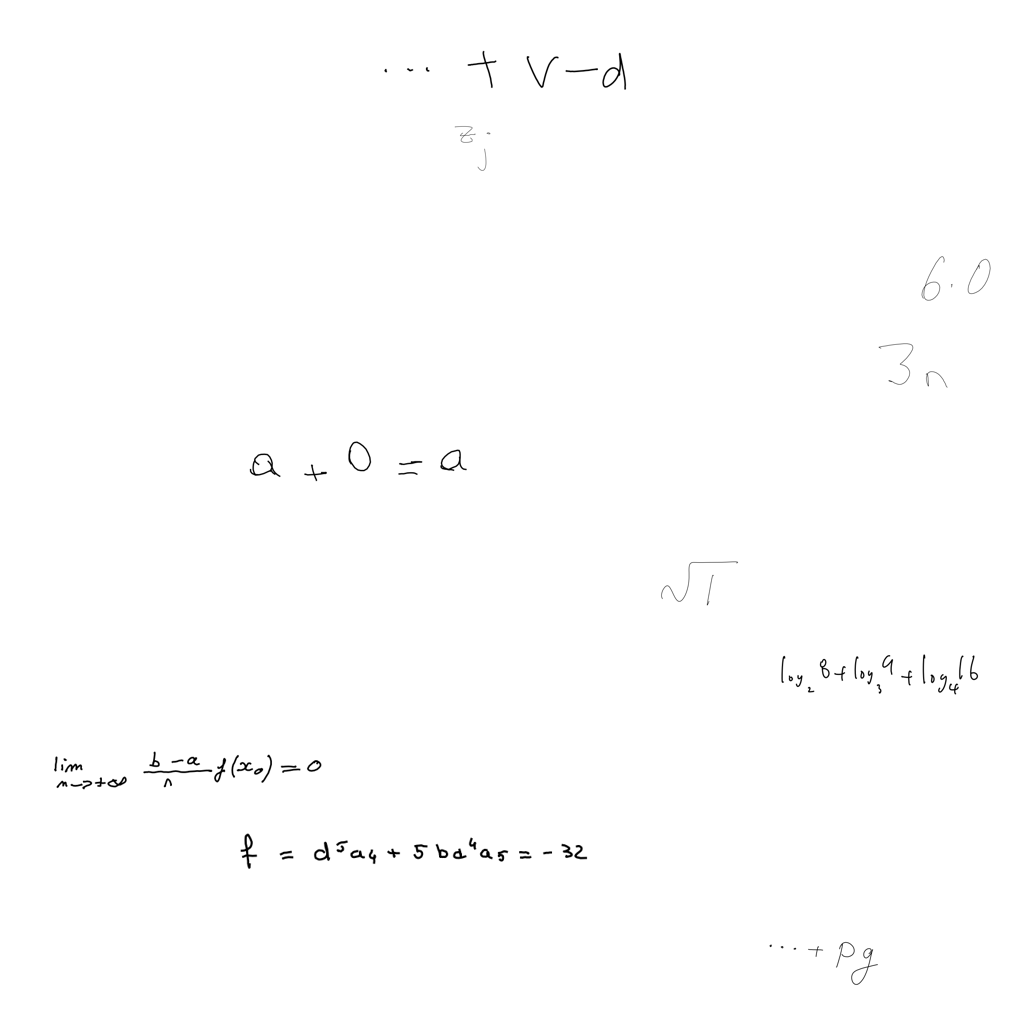 ... + v - d
z_j
6.0
3n
a + 0 = a
√1
log_2 8 + log_3 9 + log_4 16
lim_{n→+∞} \frac{b-a}{n} f(x_0) = 0
f = d^5 a_4 + 5 b d^4 a_5 = -32
... + pg